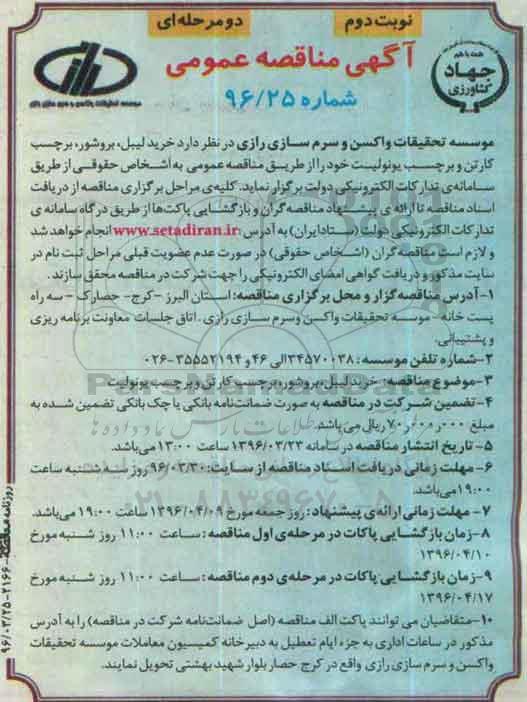 نوبت دوم
دو مرحله ای
آگهی مناقصه عمومی
شماره ۹۶/۲۵
همت با هم
جهاد
کشاورزی
موسسه تحقیقات واکسن و سرم سازی رازی
موسسه تحقیقات واکسن و سرم سازی رازی در نظر دارد خرید لیبل، بروشور، برچسب
کارتن و برچسب یونولیت خود را از طریق مناقصه عمومی به اشخاص حقوقی از طریق
سامانه ی تدارکات الکترونیکی دولت برگزار نماید. کلیه ی مراحل برگزاری مناقصه از دریافت
اسناد مناقصه تا ارائه ی پیشنهاد مناقصه گران و بازگشایی پاکت ها از طریق درگاه سامانه ی
تدارکات الکترونیکی دولت (ستاد ایران) به آدرس: www.setadiran.ir انجام خواهد شد
و لازم است مناقصه گران (اشخاص حقوقی) در صورت عدم عضویت قبلی مراحل ثبت نام در
سایت مذکور و دریافت گواهی امضای الکترونیکی را جهت شرکت در مناقصه محقق سازند.
۱-آدرس مناقصه گزار و محل برگزاری مناقصه: استان البرز -کرج- حصارک- سه راه
پست خانه- موسسه تحقیقات واکسن و سرم سازی رازی. اتاق جلسات معاونت برنامه ریزی
و پشتیبانی.
۲-شماره تلفن موسسه: ۳۴۵۷۰۰۳۸ الی ۴۶ و ۳۵۵۵۲۱۹۴-۰۲۶
۳-موضوع مناقصه: خرید لیبل، بروشور، برچسب کارتن و برچسب یونولیت
۴-تضمین شرکت در مناقصه به صورت ضمانت نامه بانکی یا چک بانکی تضمین شده به
مبلغ ۷۰۰،۰۰۰،۰۰۰ ریال می باشد.
۵- تاریخ انتشار مناقصه در سامانه ۱۳۹۶/۰۳/۲۳ ساعت ۱۳:۰۰ می باشد.
۶- مهلت زمانی دریافت اسناد مناقصه از سایت: ۹۶/۰۳/۳۰ روز سه شنبه ساعت
۱۹:۰۰ می باشد.
۷- مهلت زمانی ارائه ی پیشنهاد: روز جمعه مورخ ۱۳۹۶/۰۴/۰۹ ساعت ۱۹:۰۰ می باشد.
۸-زمان بازگشایی پاکات در مرحله ی اول مناقصه: ساعت ۱۱:۰۰ روز شنبه مورخ
۱۳۹۶/۰۴/۱۰
۹-زمان بازگشایی پاکات در مرحله ی دوم مناقصه: ساعت ۱۱:۰۰ روز شنبه مورخ
۱۳۹۶/۰۴/۱۷
۱۰-متقاضیان می توانند پاکت الف مناقصه (اصل ضمانت نامه شرکت در مناقصه) را به آدرس
مذکور در ساعات اداری به جزء ایام تعطیل به دبیرخانه کمیسیون معاملات موسسه تحقیقات
واکسن و سرم سازی رازی واقع در کرج حصار بلوار شهید بهشتی تحویل نمایند.
روزنامه مناقصه-۲۱۶۶-۹۶/۰۳/۲۵
ParsNamadData
۰۲۱-۸۸۳۴۹۶۷۰-۵